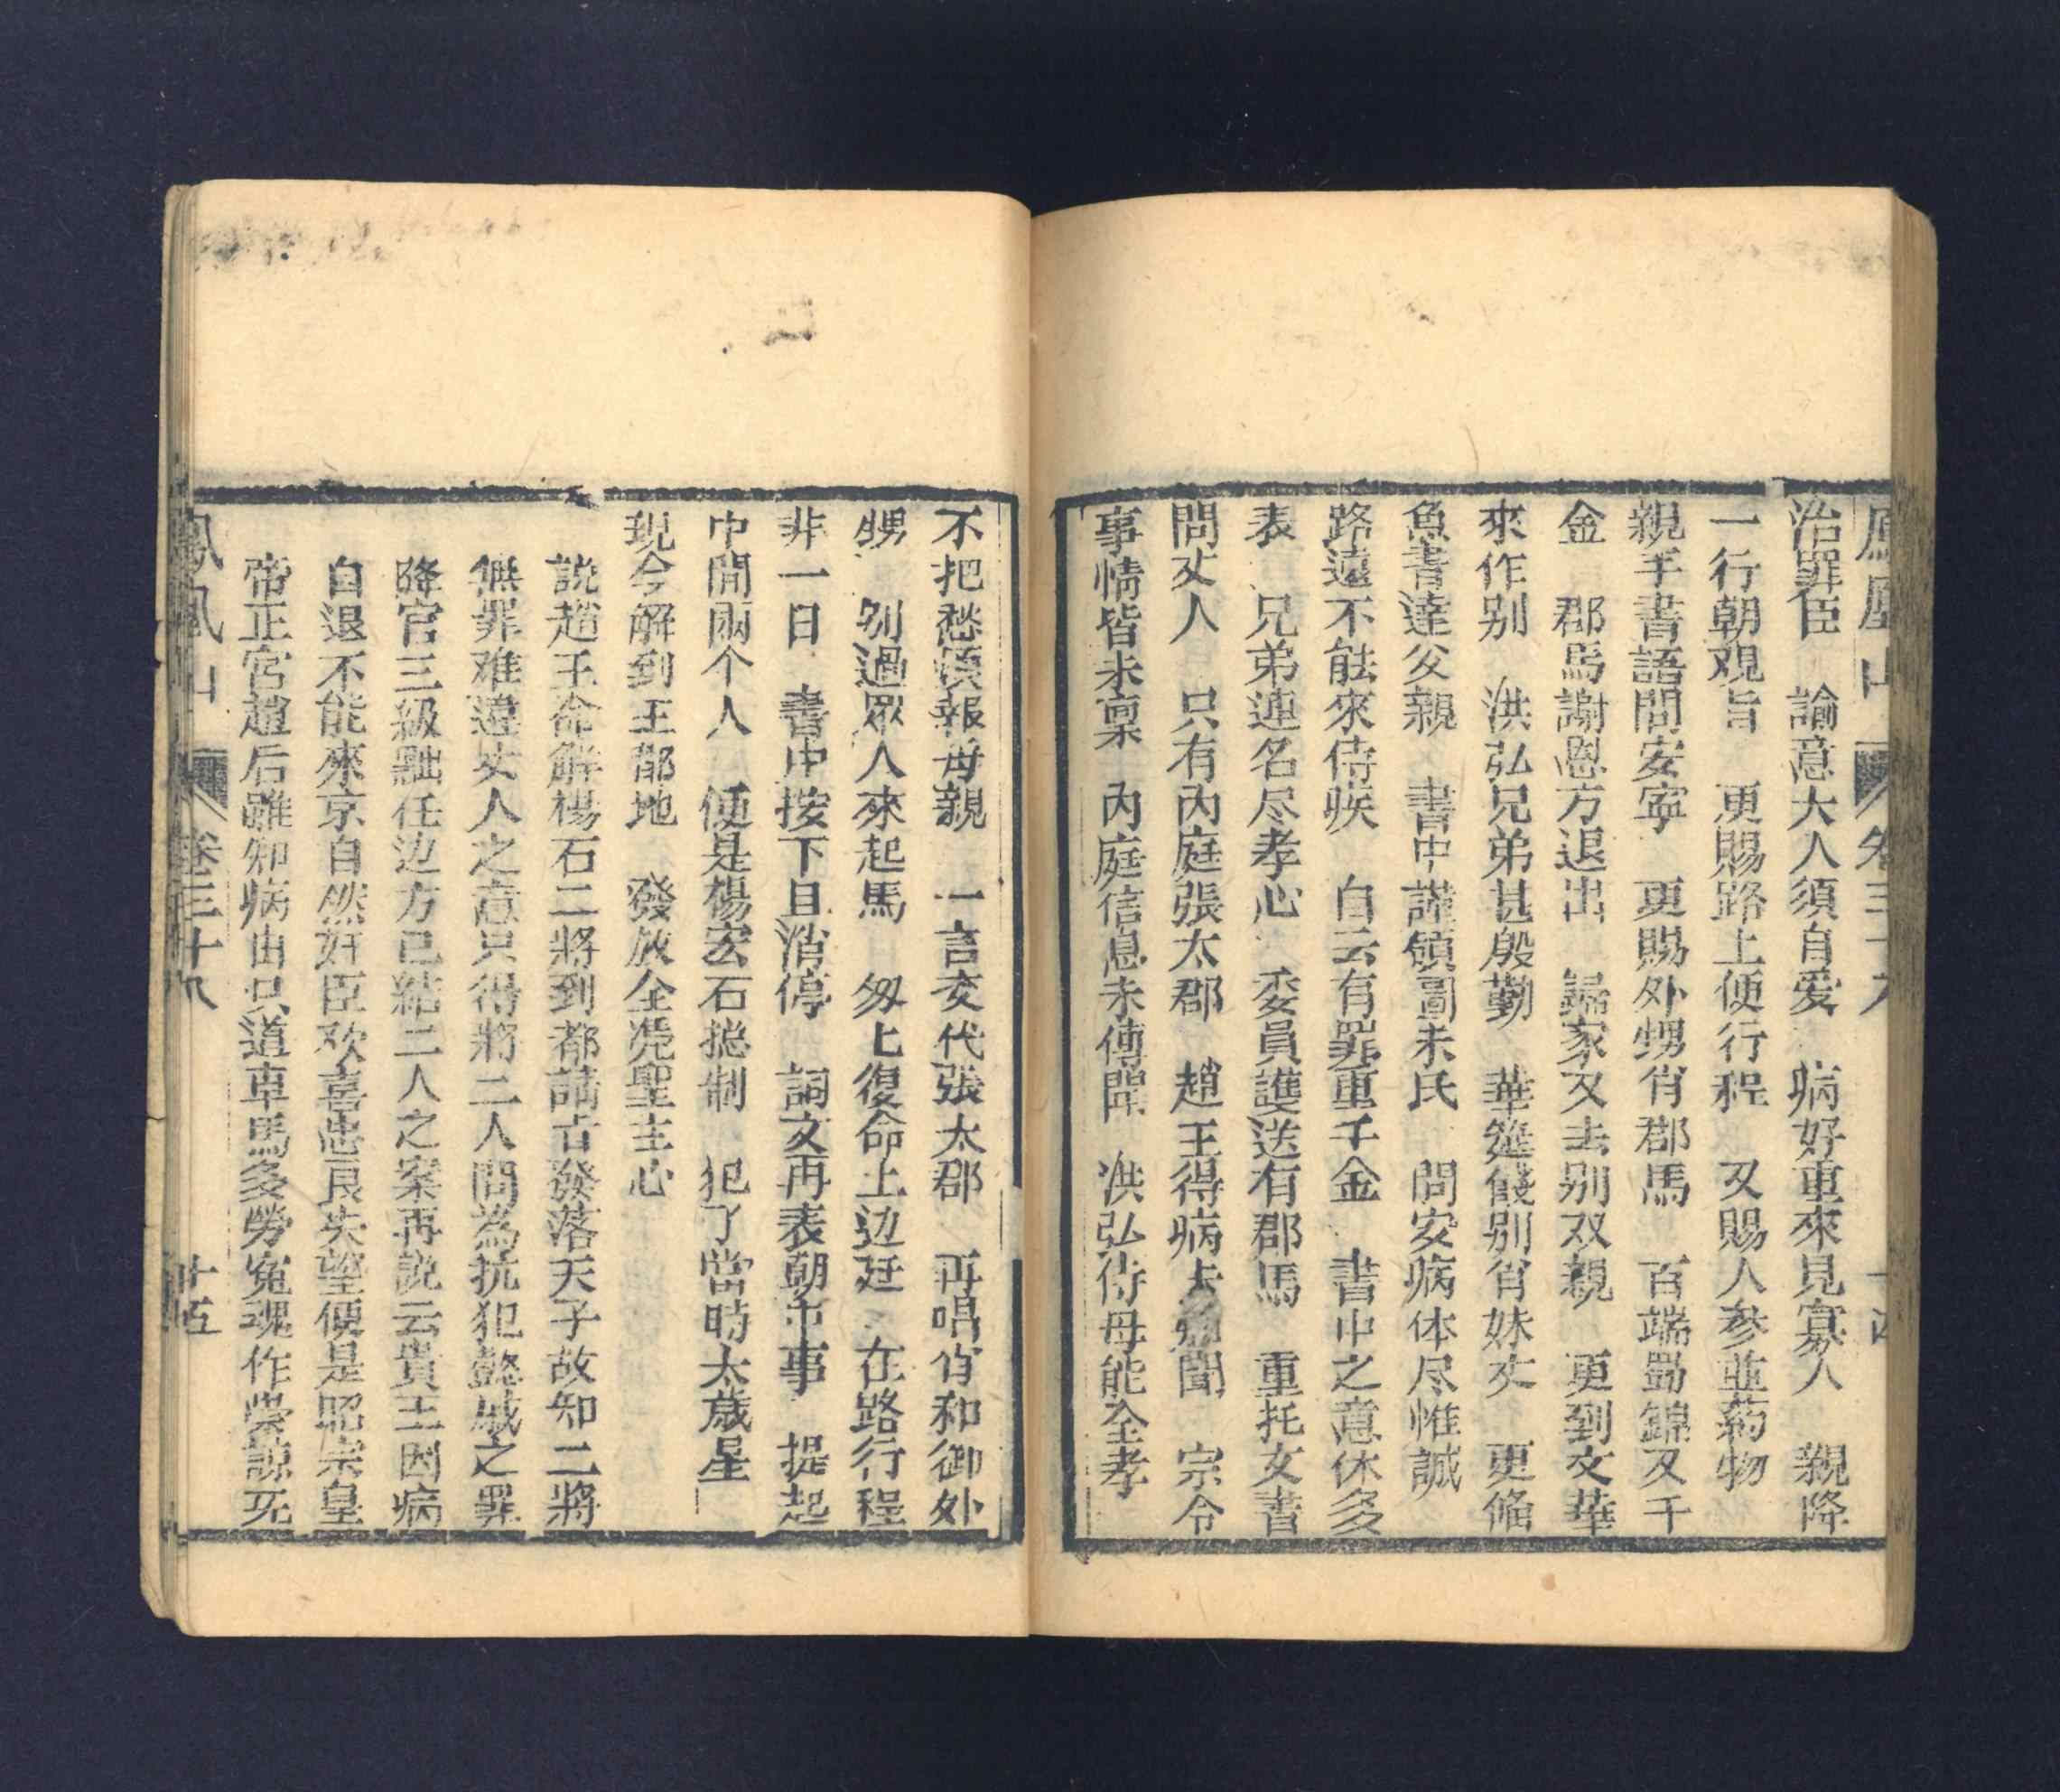 治罪臣　諭意大人須自爱　病好重來見寡人　親降
一行朝观旨　更賜路上便行程　又賜人参並葯物
親手書語問安寧　更賜外甥肖郡馬　百端蜀錦又千
金　郡馬謝恩方退出　歸家又去别双親　更到文華
來作别　洪弘兄弟甚殷勤　華筵餞别肖妹丈　更俻
魚書達父親　書中謹領啚未氏　問安病体尽惟誠
路遠不能來侍疾　自云有罪重千金　書中之意休多
表　兄弟連名尽孝心　委員護送有郡馬　重托女書
問丈人　只有內庭張太郡　趙王得病未聞　宗令
事情皆未禀　內庭信息未傳聞　洪弘待母能全孝
不把愁煩報母親　一言交代張太郡　再唱肖和御外
甥　别過眾人來起馬　匆上復命上边廷　在路行程
非一日　書中按下且消停　詞文再表朝市事　提起
中間兩个人　便是楊宏石摠制　犯了當時太歲星
現今解到王都地　發放全凴聖主心
說趙王命解楊石二將到都請旨發落天子故知二將
無罪难違丈人之意只得將二人問為抗犯懿戚之罪
降官三級黜任边方己結二人之案再說云貴王因病
自退不能來京自然奸臣欢喜忠良失望便是昭宗皇
帝正宮趙后雖知病由只道車馬多勞寃魂作祟諒死
鳳凰山　卷三十九　十五